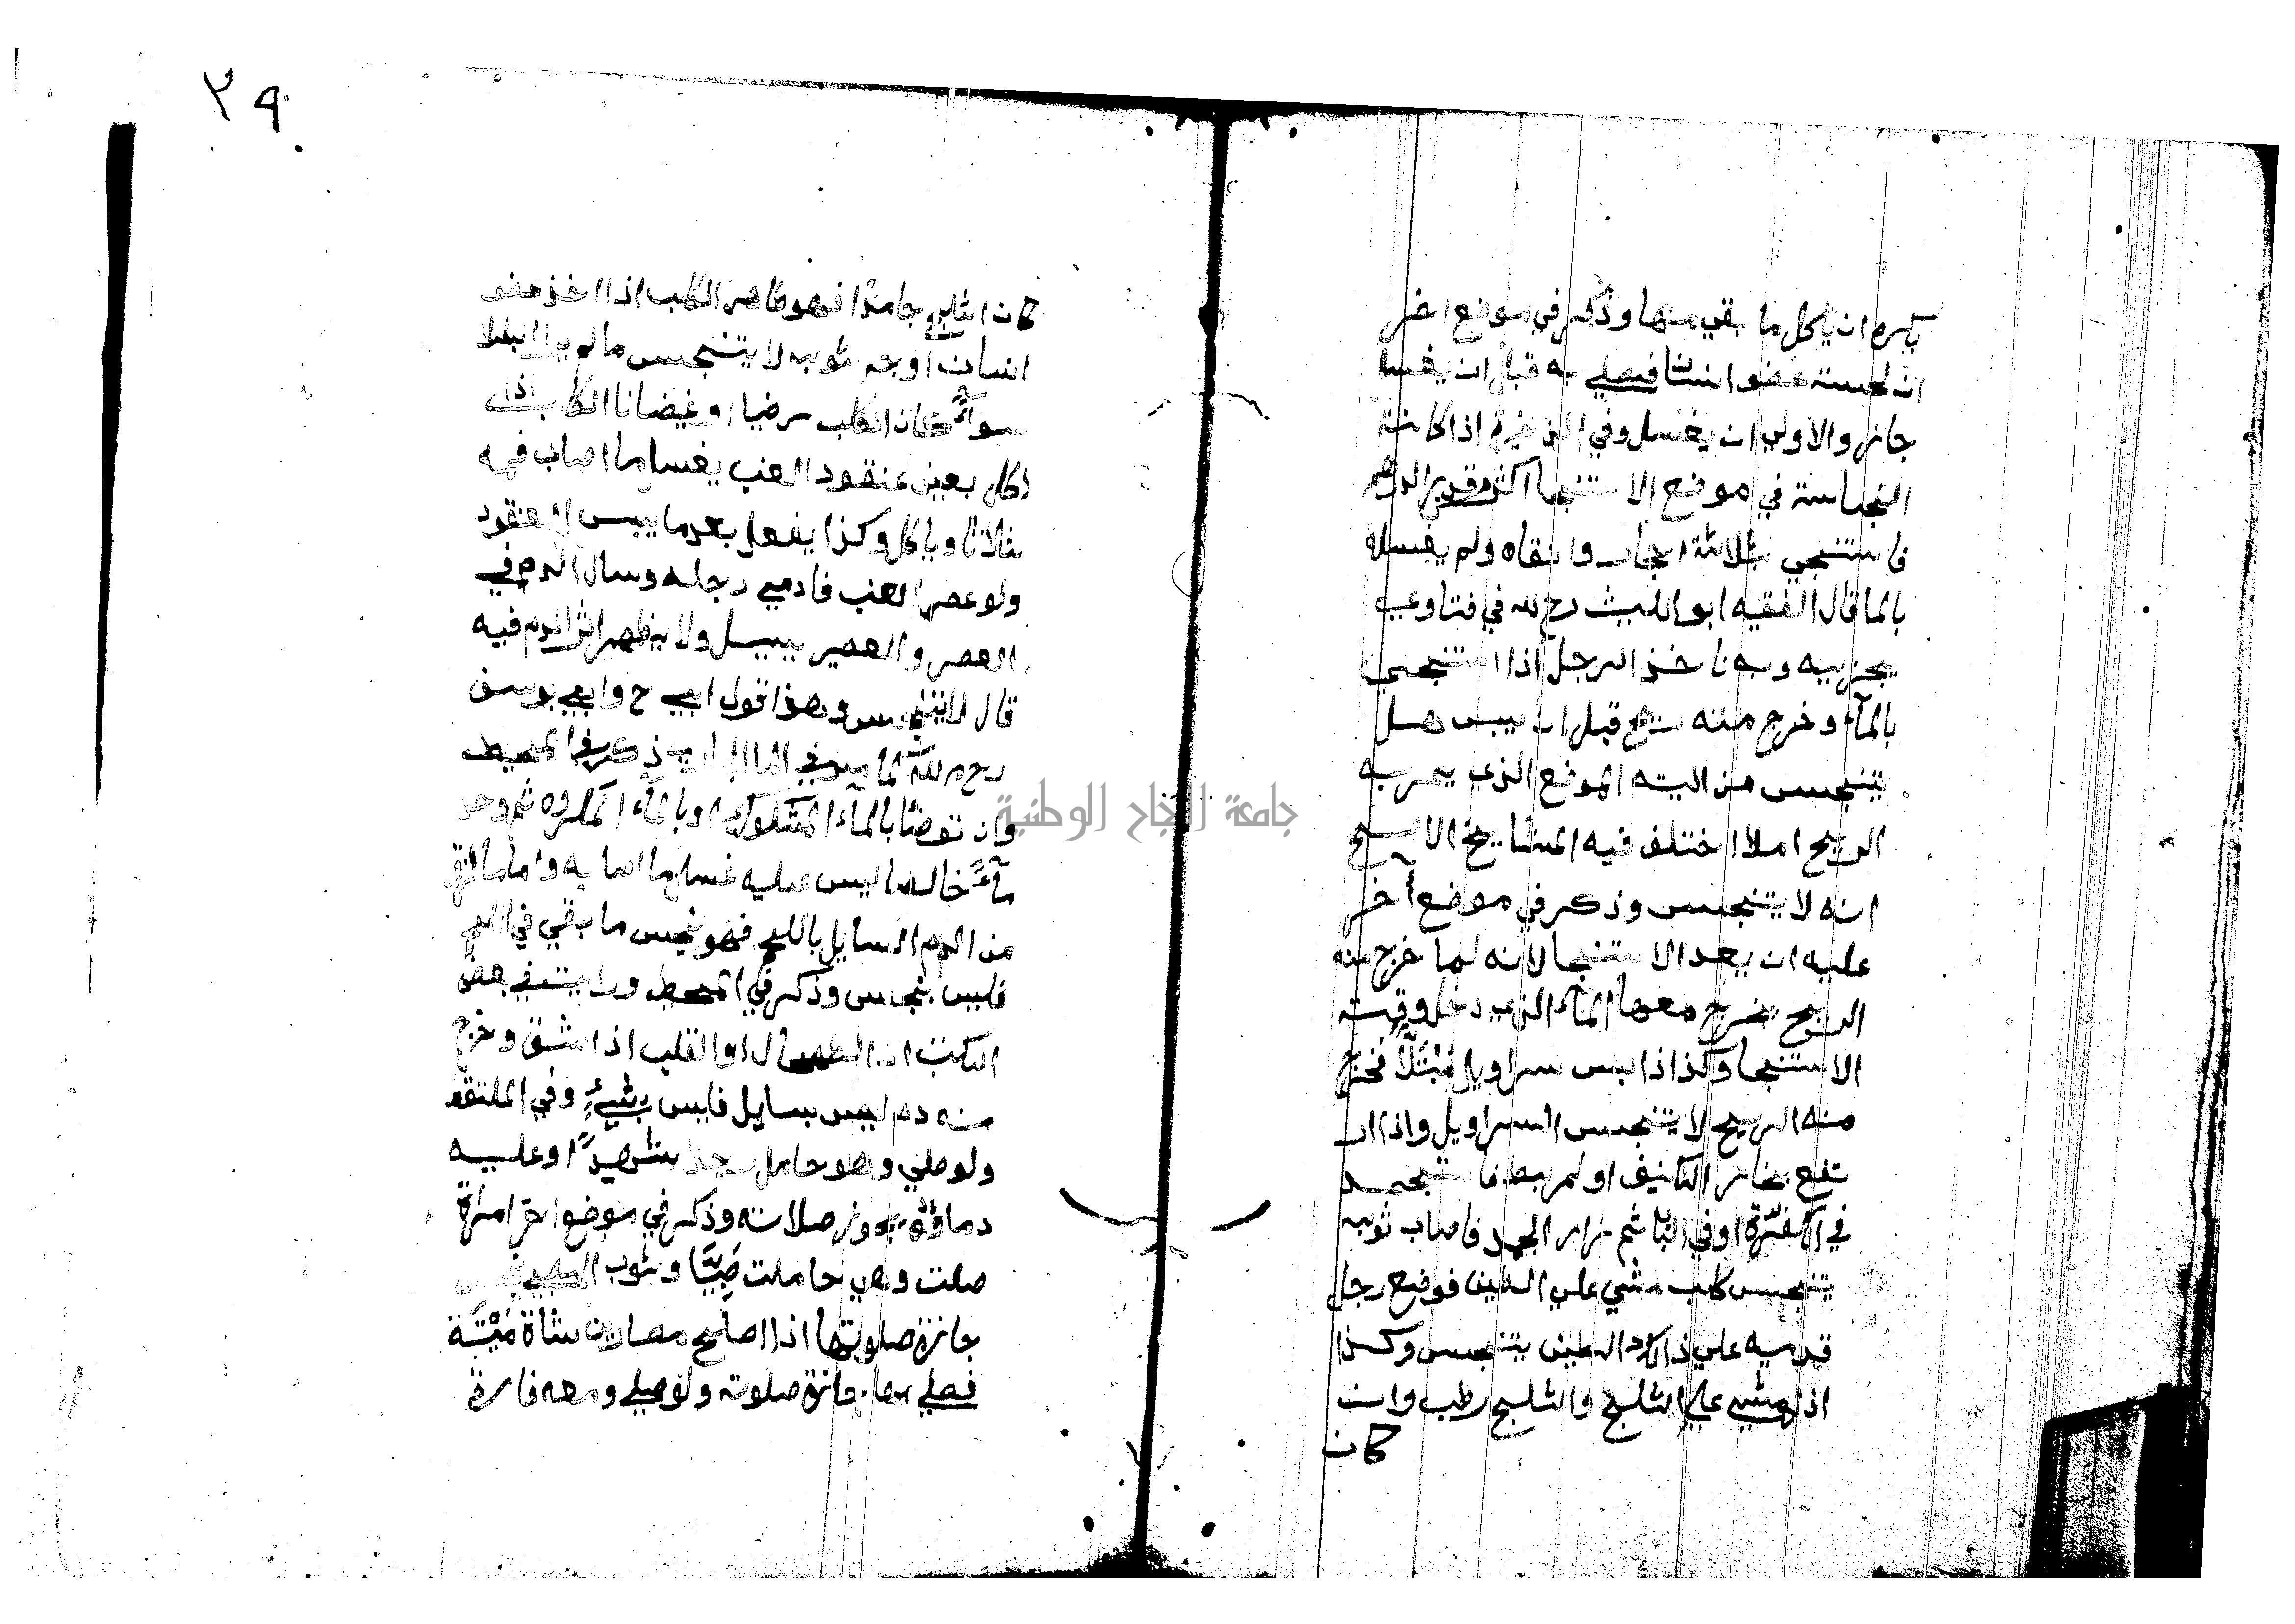 ٣٩
يكره ان ياكل ما بقي منها وذكر في موضع اخر
ان لحست عضو انسان فصلي به قبل ان يغسل
جاز والاولي ان يغسل وفي الذخيرة اذا كانت
النجاسة في موضع الاستنجا اكثر من قدر الدرهم
فاستنجي بثلاثة احجار وانقاه ولم يغسله
بالما قال الفقيه ابو الليث رح لله في فتاويه
يجزيه وبه ناخذ الرجل اذا استنجي
بالمآء وخرج منه ريح قبل ان ييبس هل
يتنجس من اليته الموضع الذي يمر به
الريح ام لا اختلف فيه المشايخ الاصح
انه لا يتنجس وذكر في موضع آخر
عليه ان يعد الاستنجا لانه لما خرج منه
الريح يخرج معها المآء الذي دخل وقت
الاستنجا وكذا اذا لبس سراويل مُبْتَلّاً فخرج
منه الريح لا يتنجس السراويل واذا ار
تفع بخار الكنيف او المربط فاستجمد
في الكفرة او في الباب ثم ذاب الجمد فاصاب ثوبه
يتنجس كلب مشي علي الطين فوضع رجل
قدميه علي ذالك الطين يتنجس وكذا
اذا مشي علي الثلج والثلج رطب وان
كان
كان الثلج جامدًا فهو طاهر الكلب اذا اخذ عضو
انسان او جر ثوبه لا يتنجس ما لم ير البلل
سوآء كان الكلب رضيا او غضبانا الكلب اذا
اكل بعض عنقود العنب يغسل ما اصاب فمه
ثلاثا وياكل وكذا يفعل بعد ما ييبس العنقود
ولو عصر العنب فادمي رجله وسال الدم في
العصر والعصير يسيل ولا يظهر اثر الدم فيه
قال لا يتنجس وهذا قول ابي ح وابي يوسف
رحم لله كما في الما الجاري ذكر في المحيط
وان توضا بالمآء المشكوك او بالمآء المكروه ثم وجد
مآءً خالصا ليس عليه غسل ما اصابه واما ما التزق
من الدم السايل باللحم فهو نجس ما بقي في اللحم
فليس بنجس وذكر في المحيط ورايت في بعض
الكتب ان الطحال او القلب اذا شق وخرج
منه دم ليس بسايل فليس بشيءٍ وفي الملتقط
ولو صلي وهو حامل رجل شهيدًا وعليه
دماؤه يجوز صلاته وذكر في موضع اخر امراة
صلت وهي حاملت صَبِيًّا وثوب الصبي نجس
جازة صلوتها اذا اصلح مصارين شاة مَيْتَة
فصلي معها جازة صلوته ولو صلي ومعه فارة